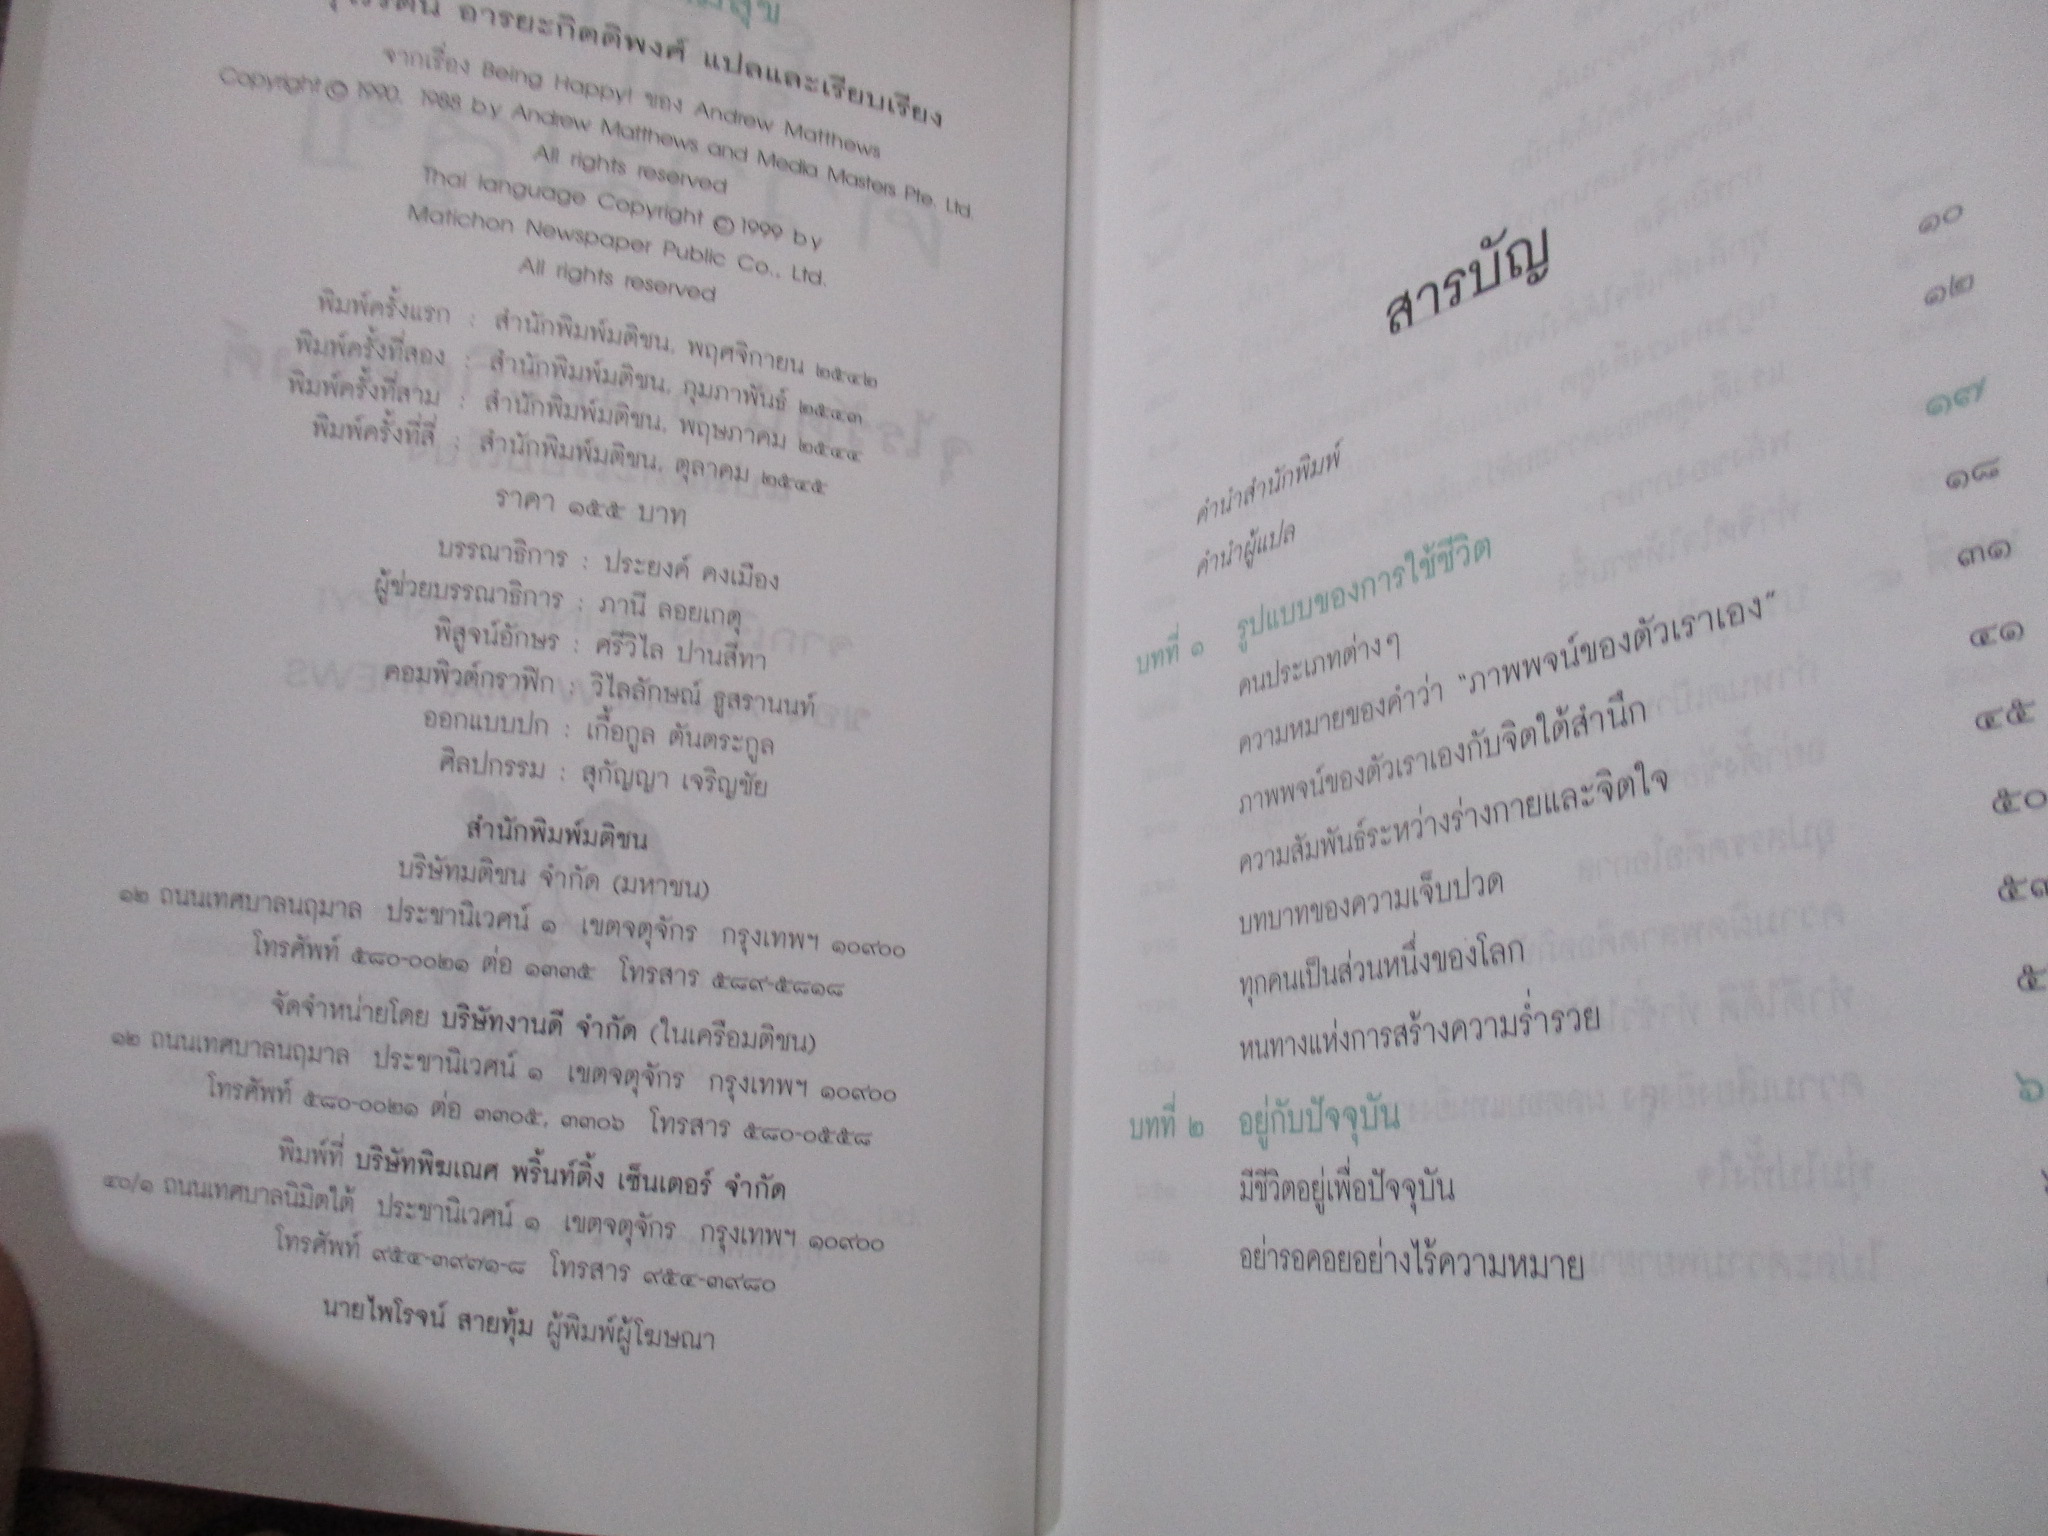 อารยะกิตติพงศ์ แปลและเรียบเรียง
จากเรื่อง Being Happy! ของ Andrew Matthews
Copyright © 1990, 1988 by Andrew Matthews and Media Masters Pte. Ltd.
All rights reserved
Thai language Copyright © 1999 by
Matichon Newspaper Public Co., Ltd.
All rights reserved
พิมพ์ครั้งแรก : สำนักพิมพ์มติชน, พฤศจิกายน ๒๕๔๒
พิมพ์ครั้งที่สอง : สำนักพิมพ์มติชน, กุมภาพันธ์ ๒๕๔๓
พิมพ์ครั้งที่สาม : สำนักพิมพ์มติชน, พฤษภาคม ๒๕๔๔
พิมพ์ครั้งที่สี่ : สำนักพิมพ์มติชน, ตุลาคม ๒๕๔๕
ราคา ๑๕๕ บาท
บรรณาธิการ : ประยงค์ คงเมือง
ผู้ช่วยบรรณาธิการ : ภานี ลอยเกตุ
พิสูจน์อักษร : ศรีวิไล ปานสีทา
คอมพิวต์กราฟิก : วิไลลักษณ์ ธูสรานนท์
ออกแบบปก : เกื้อกูล ตันตระกูล
ศิลปกรรม : สุกัญญา เจริญชัย
สำนักพิมพ์มติชน
บริษัทมติชน จำกัด (มหาชน)
๑๒ ถนนเทศบาลนฤมาล ประชานิเวศน์ ๑ เขตจตุจักร กรุงเทพฯ ๑๐๙๐๐
โทรศัพท์ ๕๘๐-๐๐๒๑ ต่อ ๑๓๓๕ โทรสาร ๕๘๙-๕๘๑๘
จัดจำหน่ายโดย บริษัทงานดี จำกัด (ในเครือมติชน)
๑๒ ถนนเทศบาลนฤมาล ประชานิเวศน์ ๑ เขตจตุจักร กรุงเทพฯ ๑๐๙๐๐
โทรศัพท์ ๕๘๐-๐๐๒๑ ต่อ ๓๓๐๕, ๓๓๐๖ โทรสาร ๕๘๐-๐๕๕๘
พิมพ์ที่ บริษัทพิฆเณศ พริ้นท์ติ้ง เซ็นเตอร์ จำกัด
๔๐/๑ ถนนเทศบาลนิมิตใต้ ประชานิเวศน์ ๑ เขตจตุจักร กรุงเทพฯ ๑๐๙๐๐
โทรศัพท์ ๙๕๔-๓๙๗๑-๘ โทรสาร ๙๕๔-๓๙๘๐
นายไพโรจน์ สายทุ้ม ผู้พิมพ์ผู้โฆษณา
สารบัญ
คำนำสำนักพิมพ์ ๑๐
คำนำผู้แปล ๑๒
บทที่ ๑ รูปแบบของการใช้ชีวิต ๑๗
คนประเภทต่างๆ ๑๘
ความหมายของคำว่า "ภาพพจน์ของตัวเราเอง" ๓๑
ภาพพจน์ของตัวเราเองกับจิตใต้สำนึก ๔๑
ความสัมพันธ์ระหว่างร่างกายและจิตใจ ๔๕
บทบาทของความเจ็บปวด ๕๐
ทุกคนเป็นส่วนหนึ่งของโลก
หนทางแห่งการสร้างความร่ำรวย
บทที่ ๒ อยู่กับปัจจุบัน
มีชีวิตอยู่เพื่อปัจจุบัน
อย่ารอคอยอย่างไร้ความหมาย